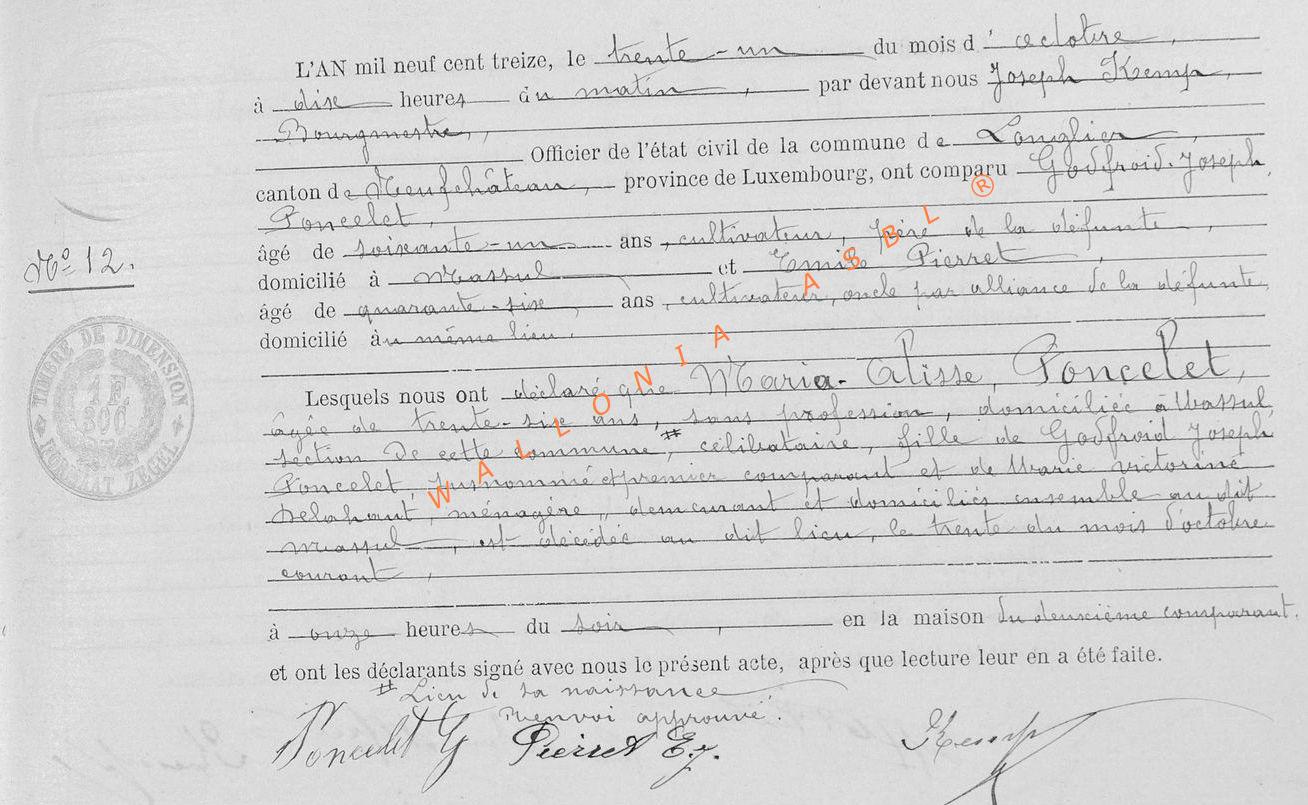 L'AN mil neuf cent treize, le trente-un du mois d'octobre,
à dix heures du matin, par devant nous Joseph Kemp,
Bourgmestre,
Officier de l'état civil de la commune de Longlier,
canton de Neufchâteau, province de Luxembourg, ont comparu Godfroid-Joseph
Poncelet,
âgé de soixante-un ans, cultivateur, père de la défunte,
domicilié à Massul et Emile Pierret,
âgé de quarante-six, ans, cultivateur, oncle par alliance de la défunte,
domicilié au même lieu.
Nº 12.
TIMBRE DE DIMENSION
FORMAAT ZEGEL
WALLONIA ASBL ®
Lesquels nous ont déclaré que Maria-Alisse, Poncelet,
âgée de trente-six ans, sans profession, domiciliée à Massul,
section de cette commune, # célibataire, fille de Godfroid Joseph
Poncelet, susnommé et premier comparant et de Marie Victorine
Delahaut, ménagère, demeurant et domiciliés ensemble au dit
Massul, est décédée au dit lieu, le trente du mois d'octobre
courant,
à onze heures du soir, en la maison du deuxième comparant.
et ont les déclarants signé avec nous le présent acte, après que lecture leur en a été faite.
# Lieu de sa naissance
Renvoi approuvé.
Poncelet G Pierret E.J. Kemp